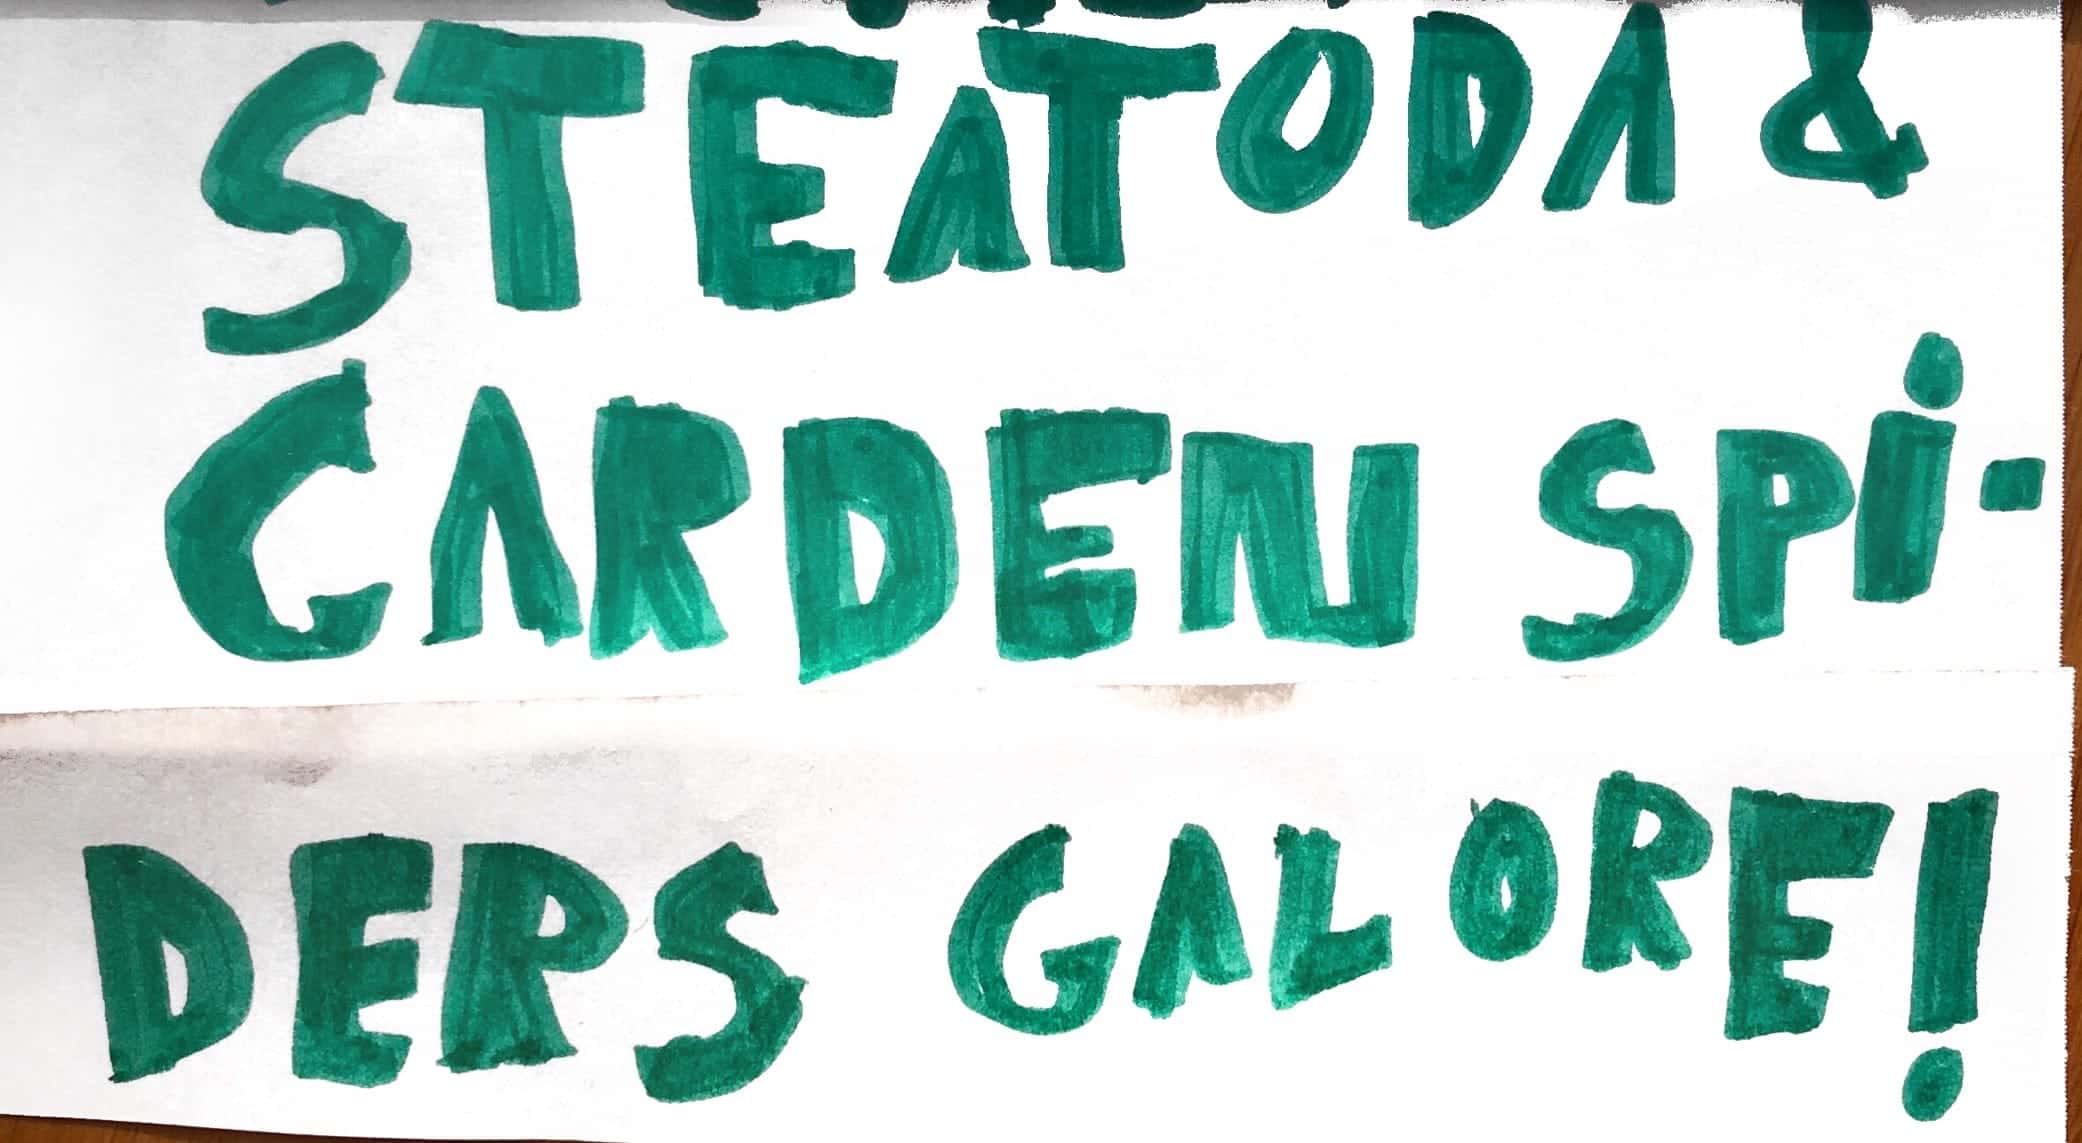 STEATODA &
GARDEN SPi-
DERS GALORE!